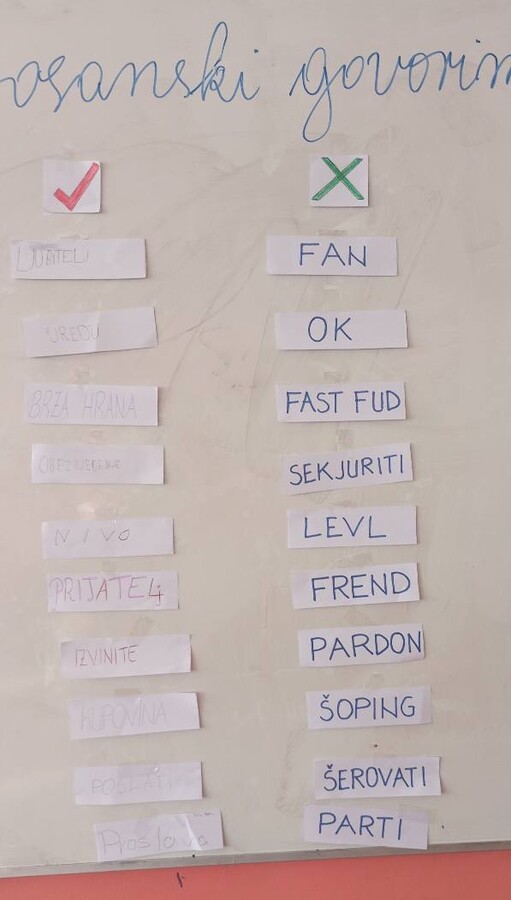 osanski govorim
LJUBITELJ FAN
UREDU OK
BRZA HRANA FAST FUD
OBEZBJEĐENJE SEKJURITI
NIVO LEVL
PRIJATELj FREND
IZVINITE PARDON
KUPOVINA ŠOPING
POSLATI ŠEROVATI
Proslava PARTI